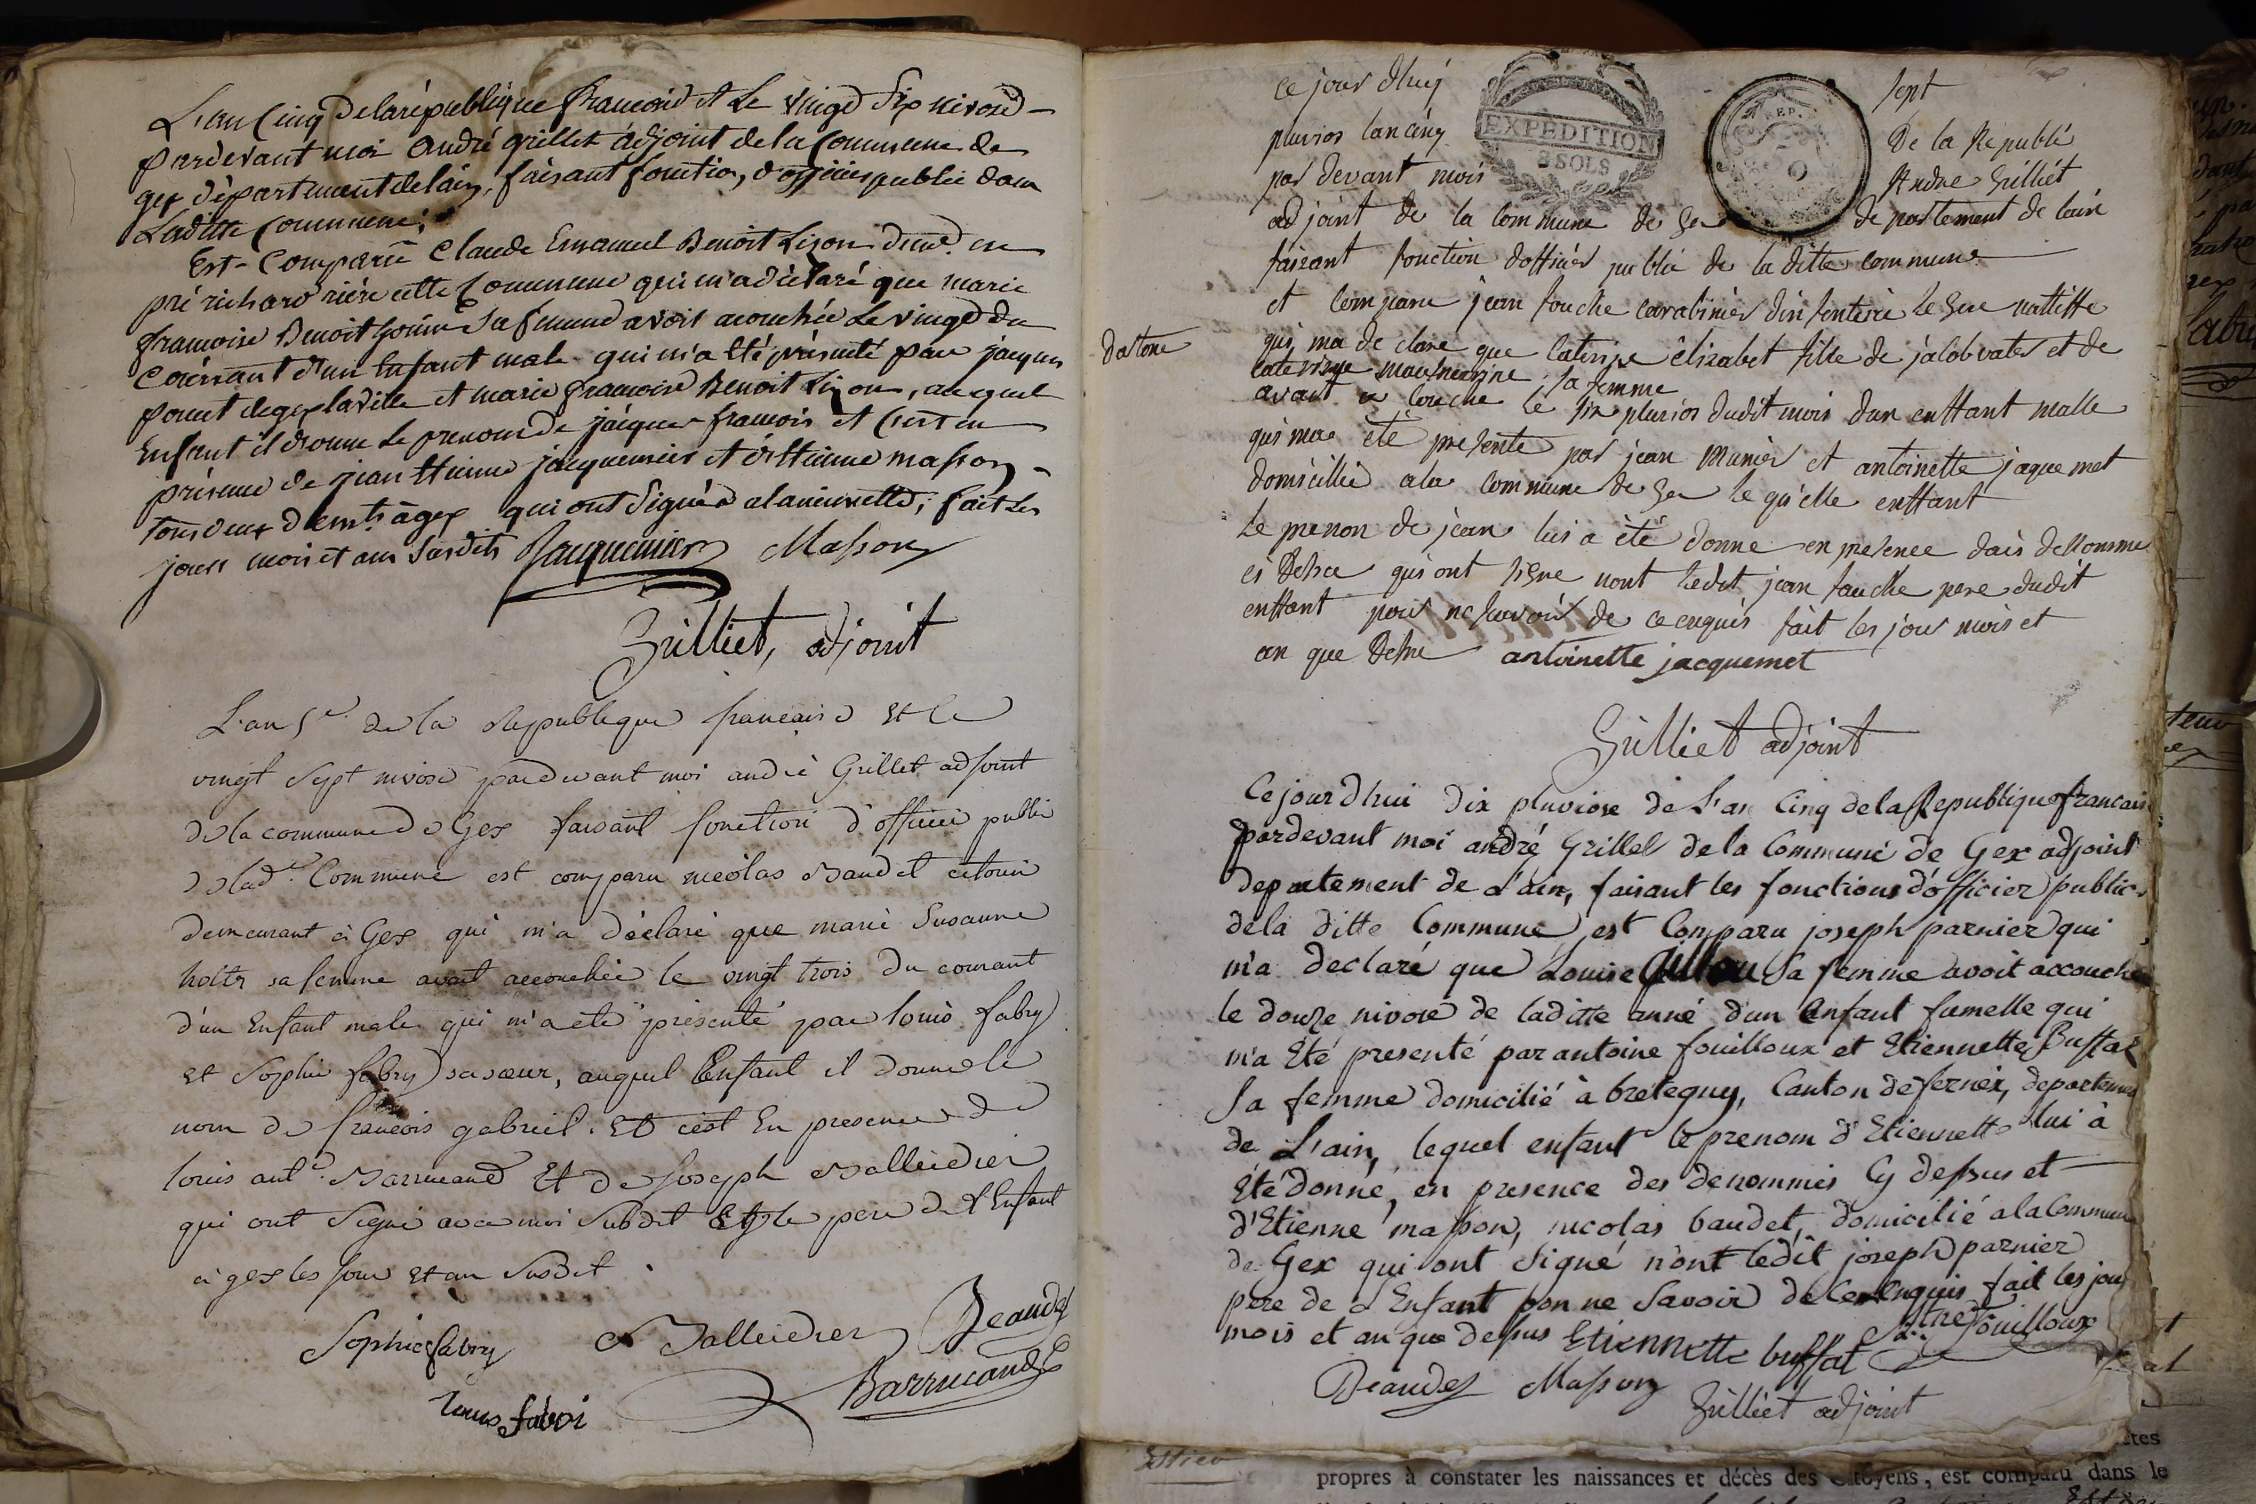 L'an Cinq de la république francoise et Le vingt Six nivose
pardevant moi André grillet adjoint de la Commune de
gex département de lain, faisant fonction, d'officier public dans
Laditte Commune;
Est Comparu Claude Emanuel Benoit Lison dem.t en
pré richard rière cette Commune qui m'a déclaré que marie
francoise Benoit Gonin Sa femme avoit acouchée Le vingt du
Courrant d'un Enfant male qui m'a été présenté par jacques
ponet de gex la ville et marie francoise Benoit Lison, auquel
Enfant il donne Le prenom de jacques francois et C'est en
présence de jean Etienne jacquemier et d'Ettienne masson
tous deux dem.ts à gex qui ont Signés a la minutte; fait Les
jours mois et an Susdits Jacquemier Masson
Grilliet, adjoint
L'an 5.e de la Republique francaise Et le
vingt Sept nivose pardevant moi andré Grillet adjoint
de la commune de Gex faisant fonction d'officier public
de lad.e Commune est comparu nicolas Baudet citoien
demeurant à Gex qui m'a déclaré que marie Susanne
holtz sa femme avoit accouchée le vingt trois du courant
d'un Enfant male qui m'a été présenté par louis fabry
et Sophie fabry sa sœur, auquel Enfant il donne le
nom de francois gabriel. Et c'est En presence de
louis ant.e Barrucand Et de Joseph Balleidier
qui ont Signé avec moi Subdit Et le pere de l'Enfant
à gex les jour et an Susdit.
Sophie fabry Balleidier Beaudet
louis fabri Barrucand
ce jour dhuy sept
pluvios lan cinq De la Republi
par devant mois Andre Grilliet
EXPEDITION
3 SOLS
REP.
adjoint de la commune de Gex de partement de lain
faisant fonction dofficier public de la ditte commune
et comparu jean fouche carabinier dinfanterie legere nattiffe
dastone
qui ma de clare que caterine élizabet fille de jacob vater et de
caterine sa femme
avait a couche le six pluvios dudit mois dun enffant malle
qui ma été presente par jean munier et antoinette jaquemet
domicillié a la commune de Gex le qu'elle enffant
le prenon de jean lui a été donne en presence dais denomme
ci desu qui ont signe nont ledit jean fouche pere dudit
enffant pour ne savoir de ce enquis fait les jour mois et
an que desu antoinette jacquemet
Grilliet adjoint
Ce jour d'hui dix pluviose de L'an Cinq de la Republique francais
pardevant moi andré Grillet de la Commune de Gex adjoint
departement de L'ain, faisant les fonctions d'officier public
de la ditte Commune, est Comparu joseph parnier qui
m'a declaré que Louise Sa femme avoit accouchée
le douze nivose de laditte anné d'un Enfant fumelle qui
m'a Eté presenté par antoine fouilloux et Etiennette Buffat
Sa femme domicilié à bretegny, Canton de fernex, departement
de L'ain, lequel enfant le prenom d'Etiennette lui à
Eté donné, en presence des denommés Cy dessus et
d'Etienne masson, nicolas baudet, domicilié a la Commune
de Gex qui ont Signé n'ont ledit joseph parnier
pere de L'Enfant pour ne Savoir de Ce Enquis fait les jour
mois et an que dessus Etiennette buffat fouilloux
Beaudet Masson Grilliet adjoint
propres à constater les naissances et décès des Citoyens, est comparu dans le